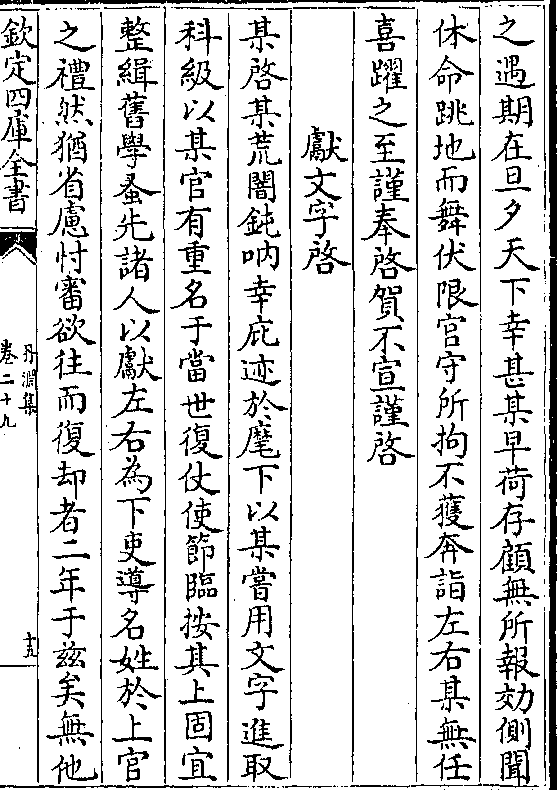 之遇期在旦夕天下幸甚某早荷存顧無所報効側聞
休命跳地而舞伏限官守所拘不獲奔詣左右某無任
喜躍之至謹奉啓賀不宣謹啓
獻文字啓
某啓某荒闇鈍吶幸庇迹於麾下以某嘗用文字進取
科級以某官有重名于當世復仗使節臨按其上固宜
整緝舊學蚤先諸人以獻左右為下吏導名姓於上官
之禮然猶省慮忖審欲往而復却者二年于兹矣無他
欽定四庫全書
丹淵集
卷二十九
十五